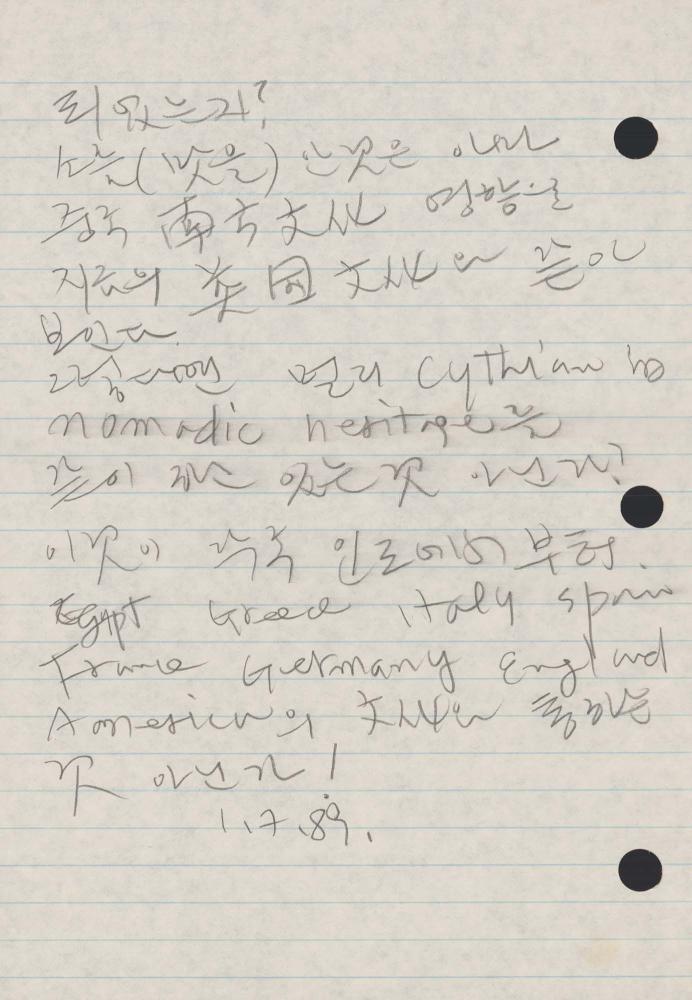 리 있는가?
오늘(맛을) 안 것은 아니나
중국 南方文化 영향을
지금의 英国文化와 같이
보인다.
그렇다면 멀리 Cythian
nomadic heritage를
같이 있는 것 아닌가?
이것이 각국 인도에서 부터.
Egypt Greece Italy Spain
France Germany England
America의 文化와 통하는
것 아닌가!
1.7.89.